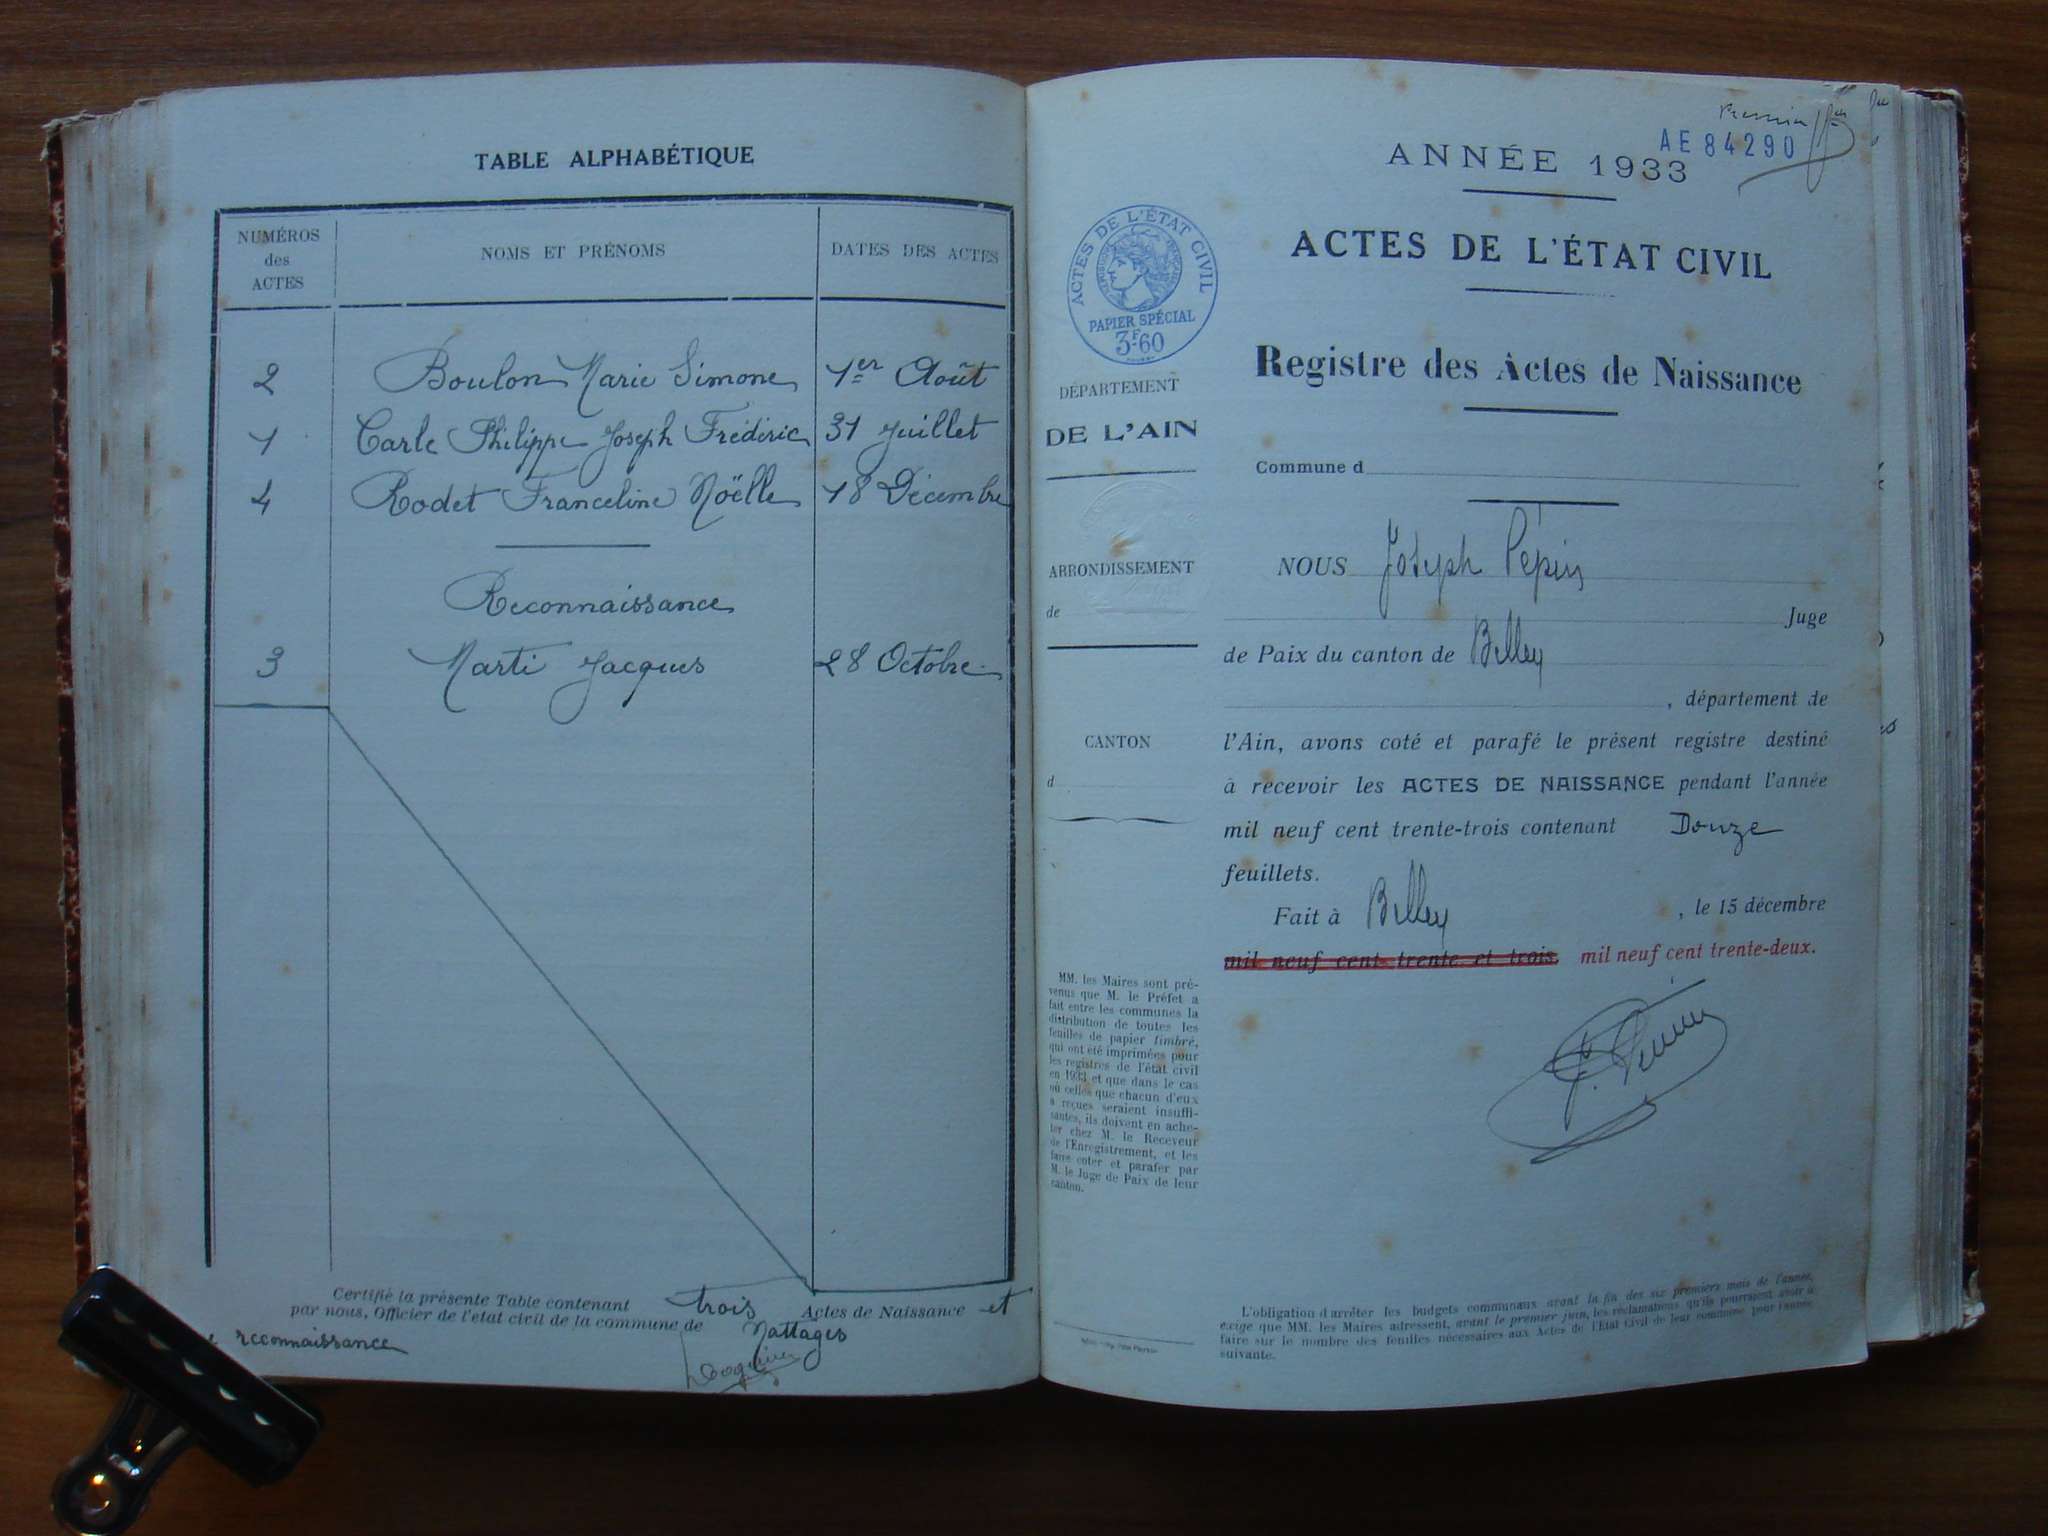 TABLE ALPHABÉTIQUE
NUMÉROS
des
ACTES
NOMS ET PRÉNOMS
DATES DES ACTES
2 Boulon Marie Simone 1er Août
1 Carle Philippe Joseph Frédéric 31 Juillet
4 Rodet Franceline Noëlle 18 Décembre
Reconnaissance
3 Marti Jacques 28 Octobre
Certifié la présente Table contenant trois Actes de Naissance et
par nous, Officier de l'état civil de la commune de Nattages
reconnaissance
Premier
AE 84290
ANNÉE 1933
ACTES DE L'ÉTAT CIVIL
Registre des Actes de Naissance
ACTES DE L'ÉTAT CIVIL
PAPIER SPÉCIAL
3F60
DÉPARTEMENT
DE L'AIN
ARRONDISSEMENT
de
CANTON
d
MM. les Maires sont pré-
venus que M. le Préfet a
fait entre les communes la
distribution de toutes les
feuilles de papier timbré,
qui ont été imprimées pour
les registres de l'état civil
en 1933 et que dans le cas
où celles que chacun d'eux
a reçues seraient insuffi-
santes, ils doivent en ache-
ter chez M. le Receveur
de l'Enregistrement, et les
faire coter et parafer par
M. le Juge de Paix de leur
canton.
Commune d
NOUS Joseph Pépin
Juge
de Paix du canton de Belley
, département de
l'Ain, avons coté et parafé le présent registre destiné
à recevoir les ACTES DE NAISSANCE pendant l'année
mil neuf cent trente-trois contenant Douze
feuillets.
Fait à Belley , le 15 décembre
mil neuf cent trente et trois. mil neuf cent trente-deux.
L'obligation d'arrêter les budgets communaux avant la fin des six premiers mois de l'année,
exige que MM. les Maires adressent, avant le premier juin, les réclamations qu'ils pourraient avoir à
faire sur le nombre des feuilles nécessaires aux Actes de l'Etat Civil de leur commune pour l'année
suivante.